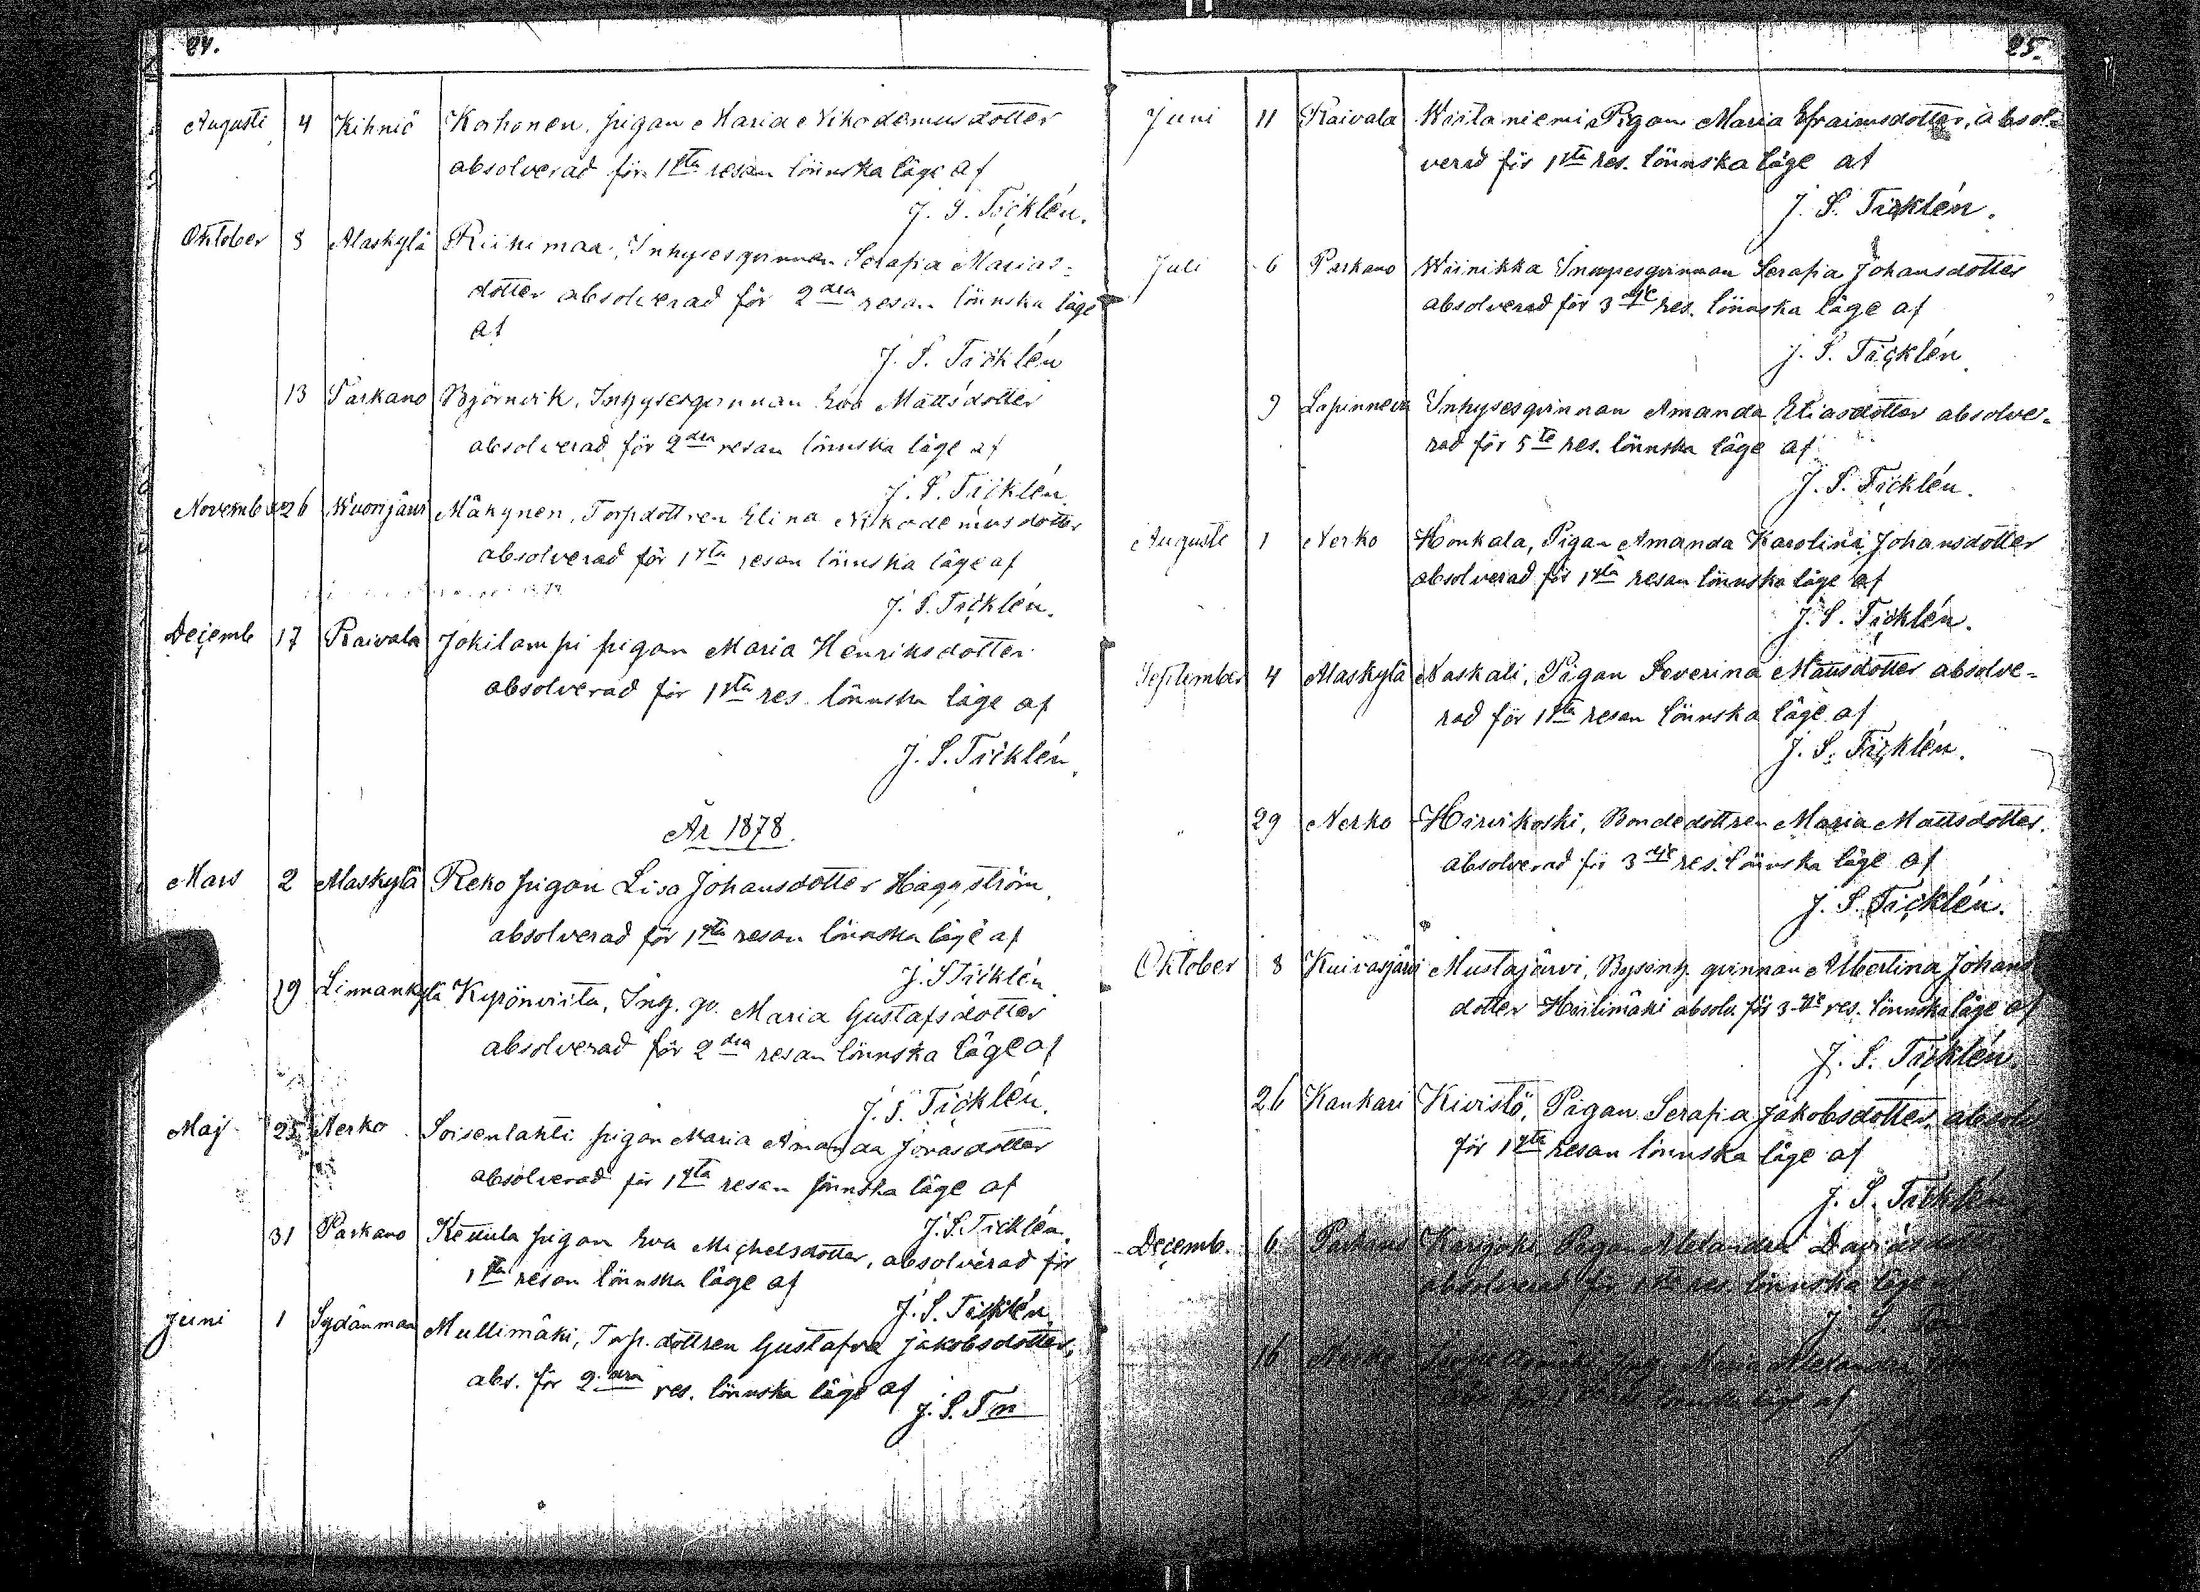 24.
Augusti 4 Kihniö Korhonen, pigan Maria Nikodemusdotter
absolverad för 1sta resan lönnska läge af
J. S. Täcklén.
Oktober 8 Alaskylä Riihimaa, Inhysesqvinnan Serafia Marias-
dotter absolverad för 2dra resan lönnska läge
af
J. S. Täcklén
13 Parkano Björnvik, Inhysesqvinnan Eva Mattsdotter
absolverad för 2dra resan lönnska läge af
J. S. Täcklén
November 26 Wuorijärvi Mäkynen, Torpdottren Elina Nikodemusdotter
absolverad för 1sta resan lönnska läge af
J. S. Täcklén.
Decemb 17 Raivala Jokilampi pigan Maria Henriksdotter
absolverad för 1sta res. lönnska läge af
J. S. Täcklén.
År 1878.
Mars 2 Alaskylä Reko pigan Lisa Johansdotter Häggström,
absolverad för 1sta resan lönnska läge af
J. S Täcklén.
19 Linnankylä Kyrönviita, Ing. qv. Maria Gustafsdotter
absolverad för 2dra resan lönnska läge af
J. S. Täcklén.
Maj 25 Nerko Soisenlahti pigan Maria Amanda Jonasdotter
absolverad för 1sta resan lönnska läge af
J. S. Täcklén.
31 Parkano Kettula pigan Eva Michelsdotter, absolverad för
1sta resan lönnska läge af
J. S. Täcklén
Juni 1 Sydänmaa Mullimäki, Torp. dottren Gustafva Jakobsdotter,
abs. för 2dra res. lönnska läge af
J. S. T n
25.
Juni 11 Raivala Kiitaniemi Pigan Maria Efraimsdotter, absol-
verad för 1sta res. lönnska läge af
J. S. Täcklén.
Juli 6 Parkano Wiinikka Inhysesqvinnan Serafia Johansdotter
absolverad för 3dje res. lönnska läge af
J. S. Täcklén.
9 Lapinneva Inhysesqvinnan Amanda Eliasdotter absolve-
rad för 5te res. lönnska läge af
J. S. Täcklén.
Augusti 1 Nerko Honkala, Pigan Amanda Karolina Johansdotter
absolverad för 1sta resan lönnska läge af
J. S. Täcklén.
September 4 Alaskylä Kaskali, Pigan Severina Mattsdotter absolve-
rad för 1sta resan lönnska läge af
J. S. Täcklén.
29 Nerko Hirvikoski, Bondedottren Maria Mattsdotter.
absolverad för 3dje res. lönnska läge af
J. S. Täcklén.
Oktober 8 Kuivasjärvi Mustajärvi, Bysing. qvinnan Albertina Johans
dotter Harilimäki absolv. för 3dje res. lönnska läge af
J. S. Täcklén.
26 Kankari Kivistö, Pigan Serafia Jakobsdotter, absolv
för 1sta resan lönnska läge af
J. S. Täcklén
Decemb. 6 Parkano Pigan Alexandra
absolverad för 1sta res. lönnska läge af
J. S.
16 Nerko